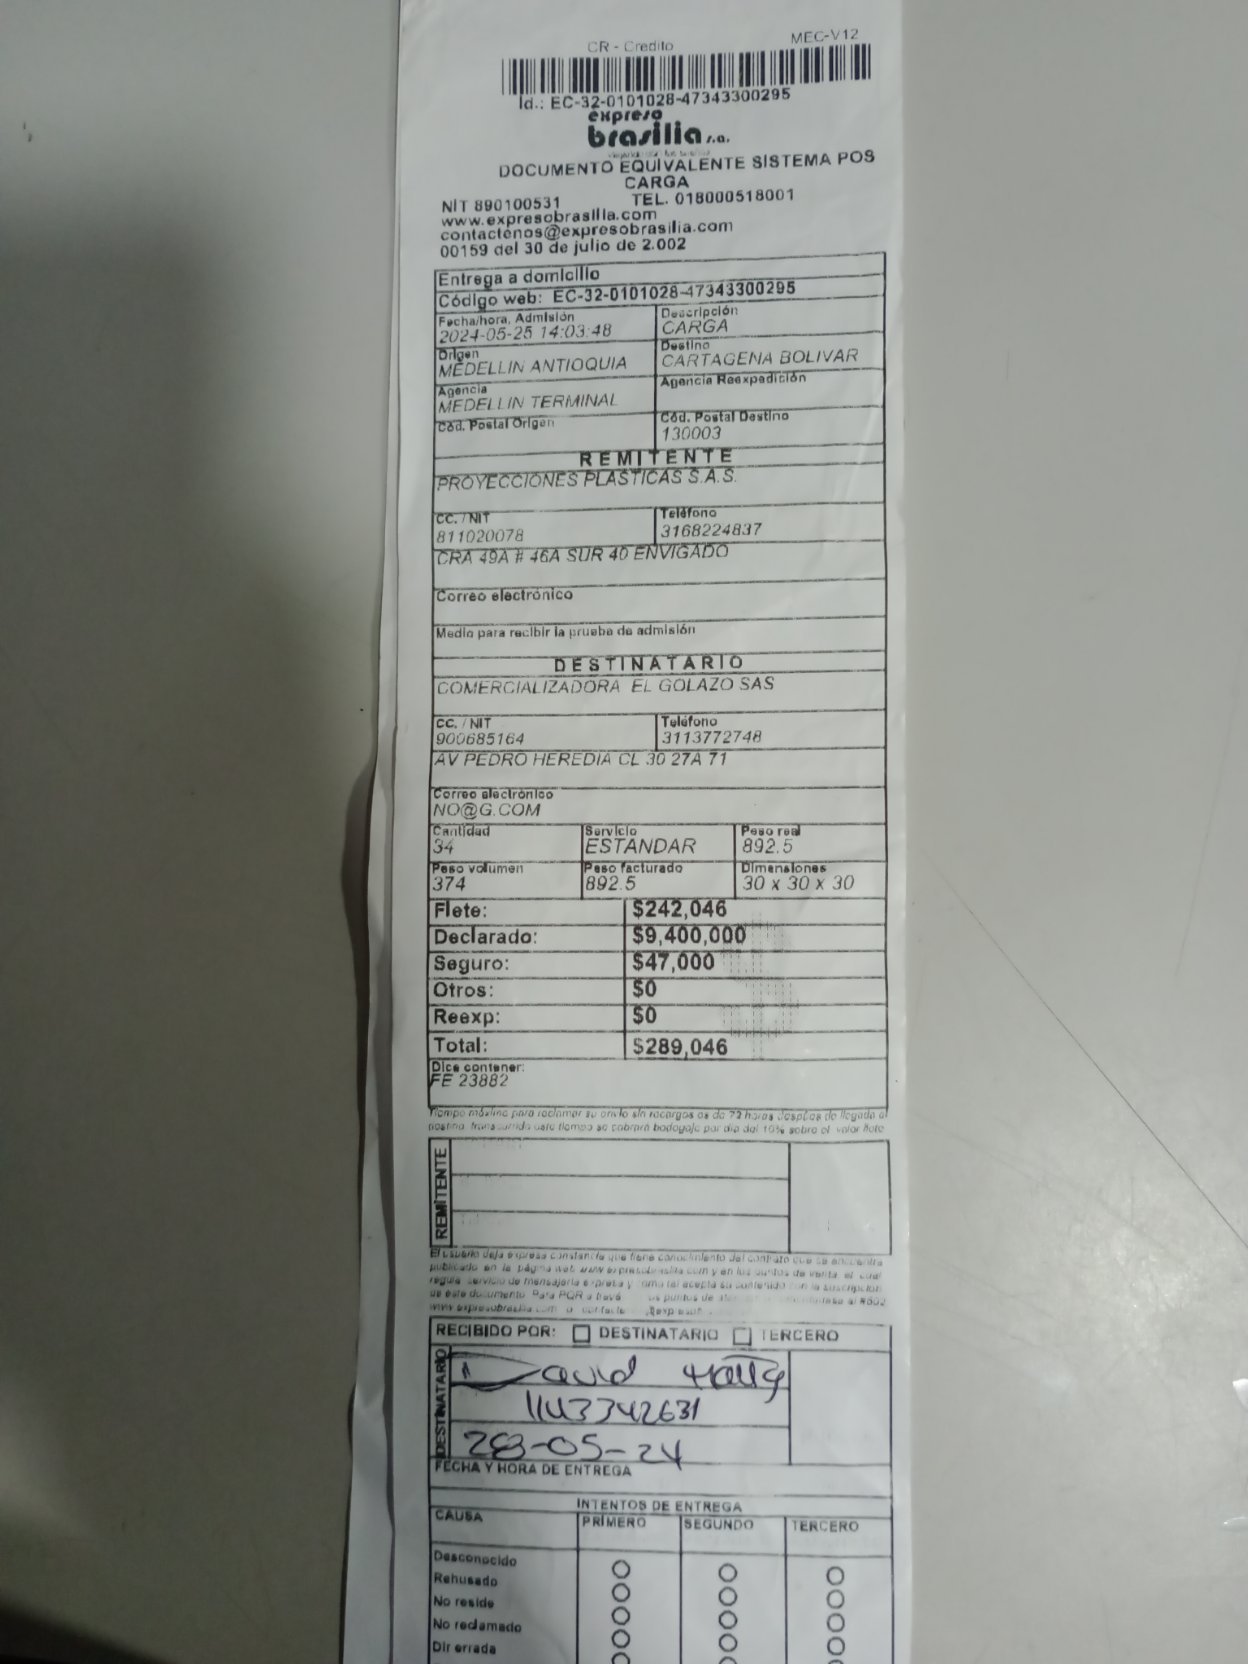 CR - Credito MEC-V12
Id.: EC-32-0101028-47343300295
expreso
brasilia s.a.
DOCUMENTO EQUIVALENTE SISTEMA POS
CARGA
NIT 890100531 TEL. 018000518001
www.expresobrasilia.com
contactenos@expresobrasilia.com
00159 del 30 de julio de 2.002
Entrega a domicilio
Código web: EC-32-0101028-47343300295
Fecha/hora, Admisión Descripción
2024-05-25 14:03:48 CARGA
Origen Destino
MEDELLIN ANTIOQUIA CARTAGENA BOLIVAR
Agencia Agencia Reexpedición
MEDELLIN TERMINAL
Cód. Postal Origen Cód. Postal Destino
130003
REMITENTE
PROYECCIONES PLASTICAS S.A.S.
CC. / NIT Teléfono
811020078 3168224837
CRA 49A # 46A SUR 40 ENVIGADO
Correo electrónico
Medio para recibir la prueba de admisión
DESTINATARIO
COMERCIALIZADORA EL GOLAZO SAS
CC. / NIT Teléfono
900685164 3113772748
AV PEDRO HEREDIA CL 30 27A 71
Correo electrónico
NO@G.COM
Cantidad Servicio Peso real
34 ESTANDAR 892.5
Peso volumen Peso facturado Dimensiones
374 892.5 30 x 30 x 30
Flete: $242,046
Declarado: $9,400,000
Seguro: $47,000
Otros: $0
Reexp: $0
Total: $289,046
Dice contener:
FE 23882
Tiempo máximo para reclamar su envío sin recargos es de 72 horas después de llegada al
destino, transcurrido este tiempo se cobrará bodegaje por día del 10% sobre el valor flete
REMITENTE
El usuario deja expresa constancia que tiene conocimiento del contrato que se encuentra
publicado en la página web www.expresobrasilia.com y en los puntos de venta, el cual
regula servicio de mensajería expresa y acepta su contenido con la suscripción
de este documento. Para PQR a través puntos de
www.expresobrasilia.com o
RECIBIDO POR: DESTINATARIO TERCERO
DESTINATARIO
David
1143342631
28-05-24
FECHA Y HORA DE ENTREGA
INTENTOS DE ENTREGA
CAUSA PRIMERO SEGUNDO TERCERO
Desconocido
Rehusado
No reside
No reclamado
Dir errada